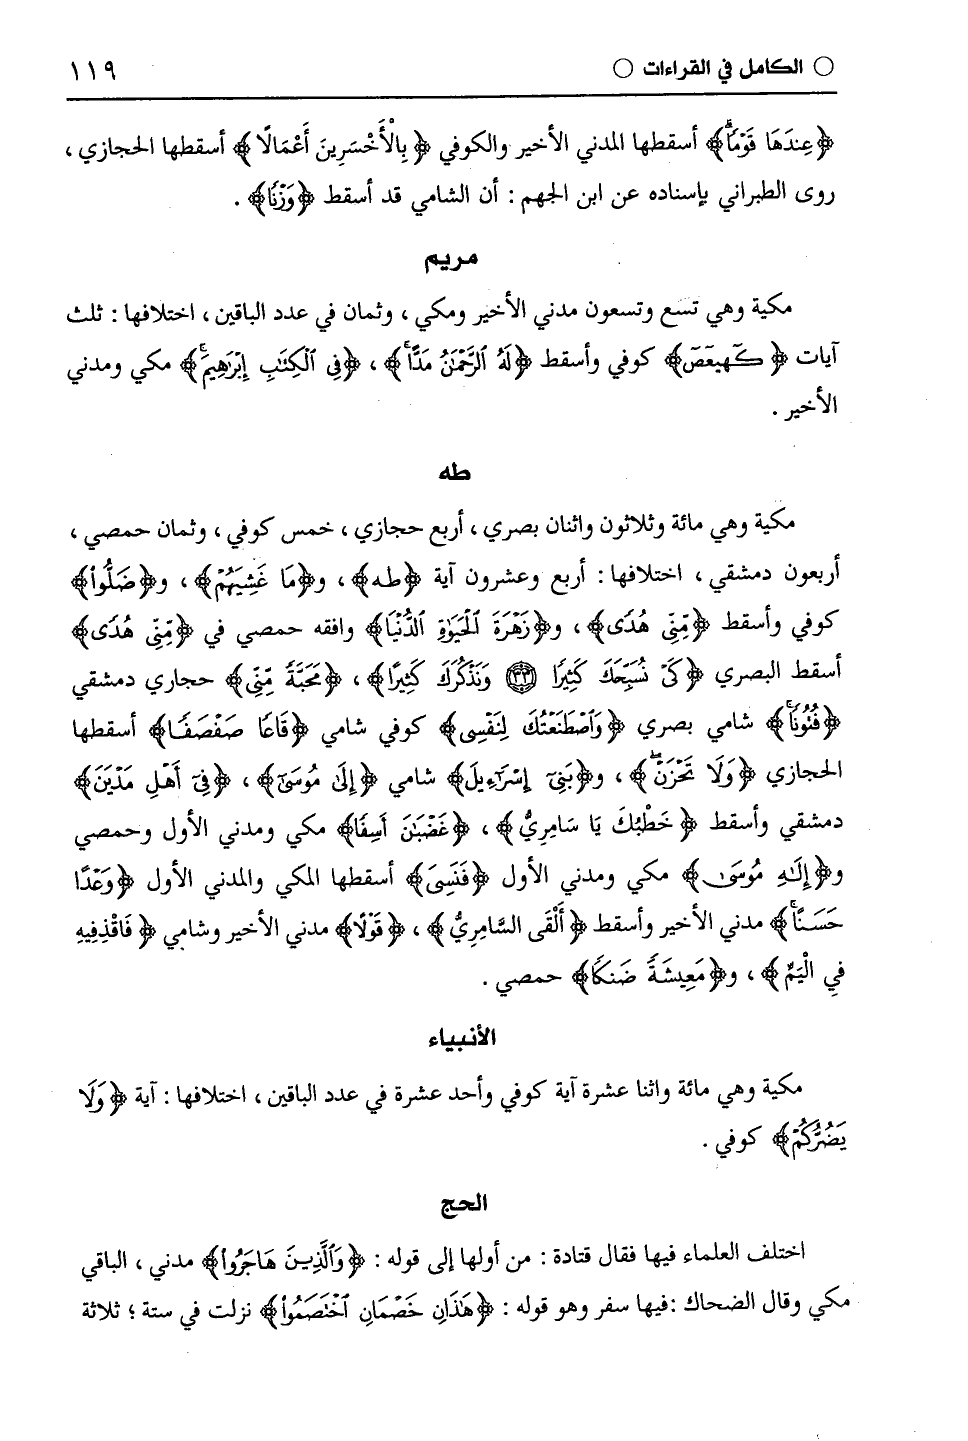 ○ الكامل في القراءات ○ ١١٩
﴿عِندَهَا قَوْمًا﴾ أسقطها المدني الأخير والكوفي ﴿بِالْأَخْسَرِينَ أَعْمَالًا﴾ أسقطها الحجازي ،
روى الطبراني بإسناده عن ابن الجهم : أن الشامي قد أسقط ﴿وَزْنًا﴾ .
مريم
مكية وهي تسع وتسعون مدني الأخير ومكي ، وثمان في عدد الباقين ، اختلافها : ثلث
آيات ﴿كٓهيعٓصٓ﴾ كوفي وأسقط ﴿لَهُ ٱلرَّحْمَٰنُ مَدًّا﴾ ، ﴿فِى ٱلْكِتَٰبِ إِبْرَٰهِيمَ﴾ مكي ومدني
الأخير .
طه
مكية وهي مائة وثلاثون واثنان بصري ، أربع حجازي ، خمس كوفي ، وثمان حمصي ،
أربعون دمشقي ، اختلافها : أربع وعشرون آية ﴿طه﴾ ، و﴿مَا غَشِيَهُمْ﴾ ، و﴿ضَلُّوٓا۟﴾
كوفي وأسقط ﴿مِّنِّى هُدًى﴾ ، و﴿زَهْرَةَ ٱلْحَيَوٰةِ ٱلدُّنْيَا﴾ وافقه حمصي في ﴿مِّنِّى هُدًى﴾
أسقط البصري ﴿كَىْ نُسَبِّحَكَ كَثِيرًا ٣٣ وَنَذْكُرَكَ كَثِيرًا﴾ ، ﴿مَحَبَّةً مِّنِّى﴾ حجاري دمشقي
﴿فُتُونًا﴾ شامي بصري ﴿وَٱصْطَنَعْتُكَ لِنَفْسِى﴾ كوفي شامي ﴿قَاعًا صَفْصَفًا﴾ أسقطها
الحجازي ﴿وَلَا تَحْزَنَ﴾ ، و﴿بَنِىٓ إِسْرَٰٓءِيلَ﴾ شامي ﴿إِلَىٰ مُوسَىٰٓ﴾ ، ﴿فِىٓ أَهْلِ مَدْيَنَ﴾
دمشقي وأسقط ﴿خَطْبُكَ يَا سَامِرِيُّ﴾ ، ﴿غَضْبَٰنَ أَسِفًا﴾ مكي ومدني الأول وحمصي
و﴿إِلَٰهِ مُوسَىٰ﴾ مكي ومدني الأول ﴿فَنَسِىَ﴾ أسقطها المكي والمدني الأول ﴿وَعْدًا
حَسَنًا﴾ مدني الأخير وأسقط ﴿أَلْقَى السَّامِرِيُّ﴾ ، ﴿قَوْلًا﴾ مدني الأخير وشامي ﴿فَاقْذِفِيهِ
فِي الْيَمِّ﴾ ، و﴿مَعِيشَةً ضَنكًا﴾ حمصي .
الأنبياء
مكية وهي مائة واثنا عشرة آية كوفي وأحد عشرة في عدد الباقين ، اختلافها : آية ﴿وَلَا
يَضُرُّكُمْ﴾ كوفي .
الحج
اختلف العلماء فيها فقال قتادة : من أولها إلى قوله : ﴿وَٱلَّذِينَ هَاجَرُوا۟﴾ مدني ، الباقي
مكي وقال الضحاك :فيها سفر وهو قوله : ﴿هَٰذَانِ خَصْمَانِ ٱخْتَصَمُوا۟﴾ نزلت في ستة ؛ ثلاثة